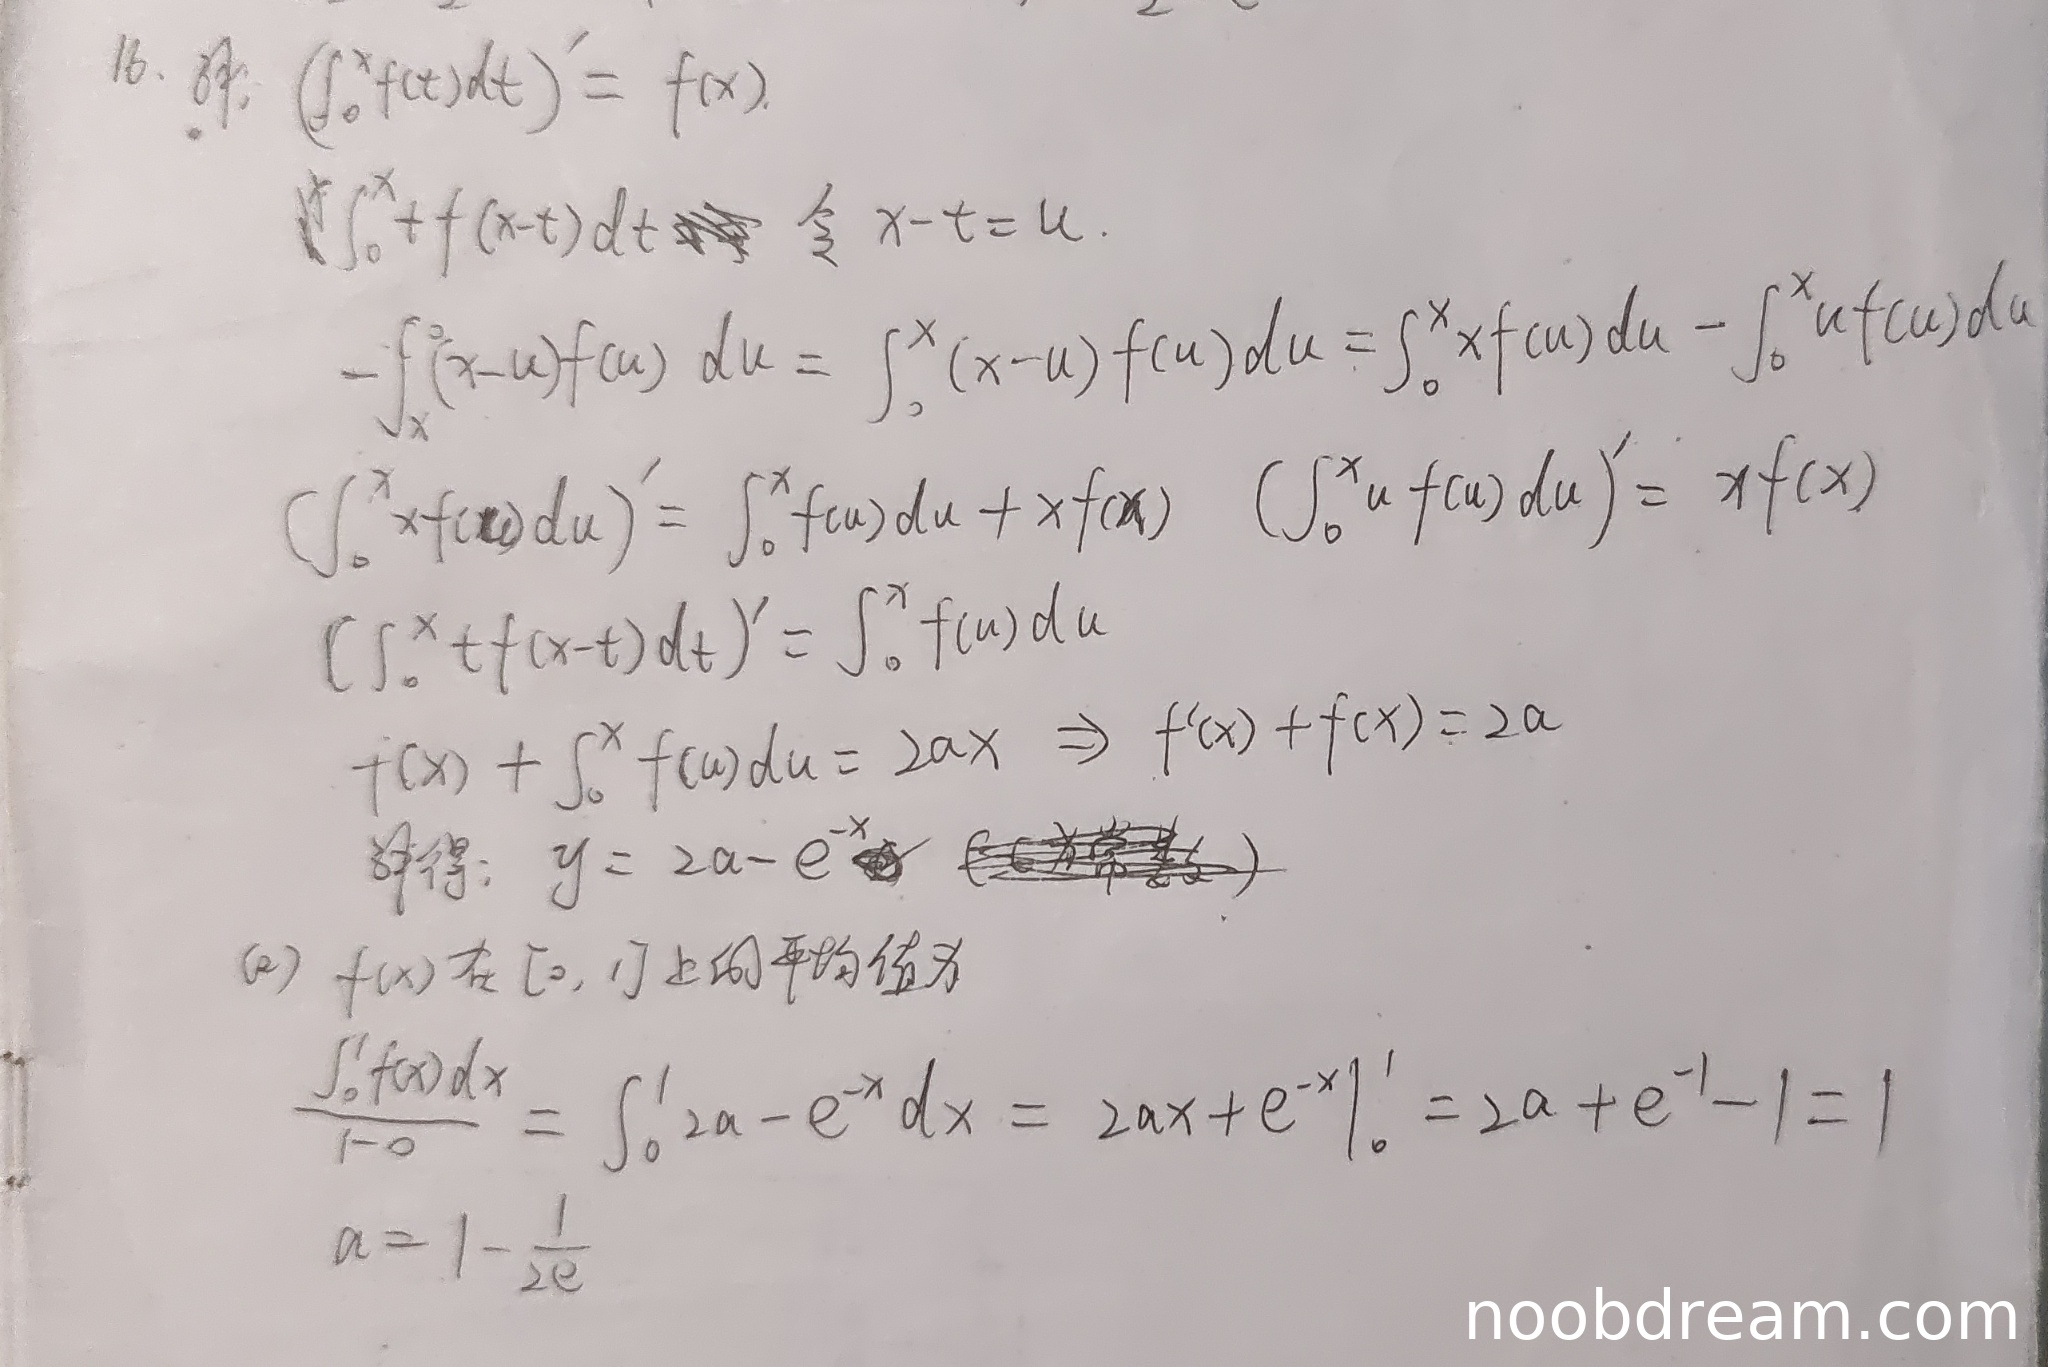 16. 解: (∫₀ˣ f(t)dt)′ = f(x).
∫₀ˣ t f(x-t)dt 令 x-t=u.
-∫ₓ⁰(x-u)f(u) du = ∫₀ˣ(x-u)f(u)du = ∫₀ˣ xf(u)du - ∫₀ˣ uf(u)du
(∫₀ˣ xf(u)du)′ = ∫₀ˣ f(u)du + xf(x) (∫₀ˣ u f(u)du)′ = xf(x)
(∫₀ˣ t f(x-t)dt)′ = ∫₀ˣ f(u)du
f(x) + ∫₀ˣ f(u)du = 2ax ⇒ f′(x)+f(x)=2a
解得: y = 2a-e⁻ˣ
(2) f(x)在[0,1]上的平均值为
∫₀¹f(x)dx / 1-0 = ∫₀¹ 2a-e⁻ˣ dx = 2ax+e⁻ˣ|₀¹ = 2a+e⁻¹-1=1
a = 1-1/2e
noobdream.com